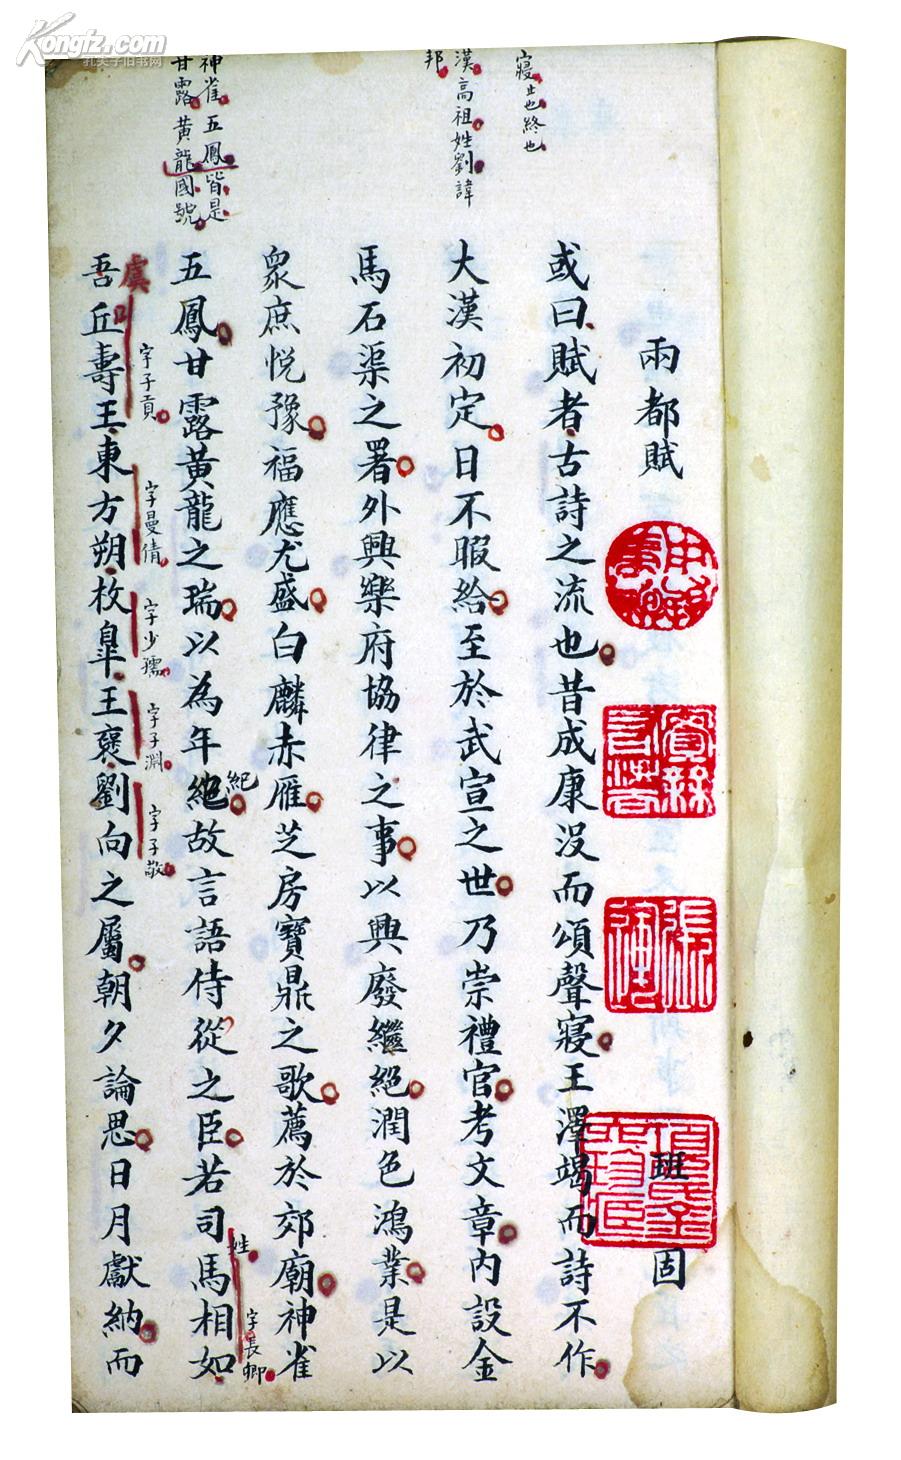 Kongfz.com
孔夫子旧书网
寢止也終也
漢高祖姓劉諱
邦
神雀五鳳皆是
甘露黃龍國號
兩都賦
班固
或曰賦者古詩之流也昔成康沒而頌聲寢王澤竭而詩不作
大漢初定日不暇給至於武宣之世乃崇禮官考文章內設金
馬石渠之署外興樂府協律之事以興廢繼絕潤色鴻業是以
衆庶悅豫福應尤盛白麟赤雁芝房寶鼎之歌薦於郊廟神雀
五鳳甘露黃龍之瑞以為年絕故言語侍從之臣若司馬相如
紀
姓
字長卿
虞口
吾丘壽王東方朔枚臯王褒劉向之屬朝夕論思日月獻納而
字子貢
字曼倩
字少孺
字子淵
字子敬